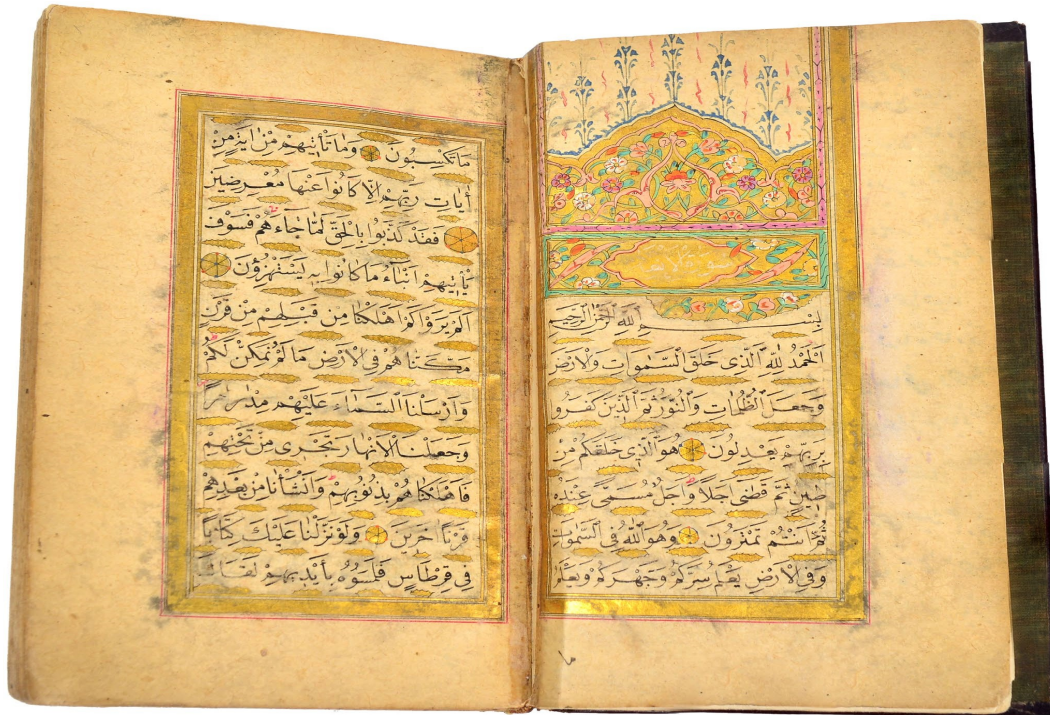 سورة الانعام
بسم الله الرحمن الرحيم
اَلْحَمْدُ لِلّٰهِ الَّذى خَلَقَ السَّمٰوَاتِ وَالْاَرْضَ
وَجَعَلَ الظُّلُمَاتِ وَالنُّورَ ثُمَّ الَّذينَ كَفَرُوا
بِرَبِّهِمْ يَعْدِلُونَ هُوَ الَّذى خَلَقَكُمْ مِنْ
طينٍ ثُمَّ قَضٰى اَجَلًا وَاَجَلٌ مُسَمًّى عِنْدَهُ
ثُمَّ اَنْتُمْ تَمْتَرُونَ وَهُوَ اللّٰهُ فِى السَّمٰوَاتِ
وَفِى الْاَرْضِ يَعْلَمُ سِرَّكُمْ وَجَهْرَكُمْ وَيَعْلَمُ
مَا تَكْسِبُونَ وَمَا تَاْتيهِمْ مِنْ اٰيَةٍ مِنْ
اٰيَاتِ رَبِّهِمْ اِلَّا كَانُوا عَنْهَا مُعْرِضينَ
فَقَدْ كَذَّبُوا بِالْحَقِّ لَمَّا جَاءَهُمْ فَسَوْفَ
يَاْتيهِمْ اَنْبَاءُ مَا كَانُوا بِه يَسْتَهْزِؤُنَ
اَلَمْ يَرَوْا كَمْ اَهْلَكْنَا مِنْ قَبْلِهِمْ مِنْ قَرْنٍ
مَكَّنَّاهُمْ فِى الْاَرْضِ مَا لَمْ نُمَكِّنْ لَكُمْ
وَاَرْسَلْنَا السَّمَاءَ عَلَيْهِمْ مِدْرَارًا
وَجَعَلْنَا الْاَنْهَارَ تَجْرى مِنْ تَحْتِهِمْ
فَاَهْلَكْنَاهُمْ بِذُنُوبِهِمْ وَاَنْشَاْنَا مِنْ بَعْدِهِمْ
قَرْنًا اٰخَرينَ وَلَوْ نَزَّلْنَا عَلَيْكَ كِتَابًا
فى قِرْطَاسٍ فَلَمَسُوهُ بِاَيْديهِمْ لَقَالَ